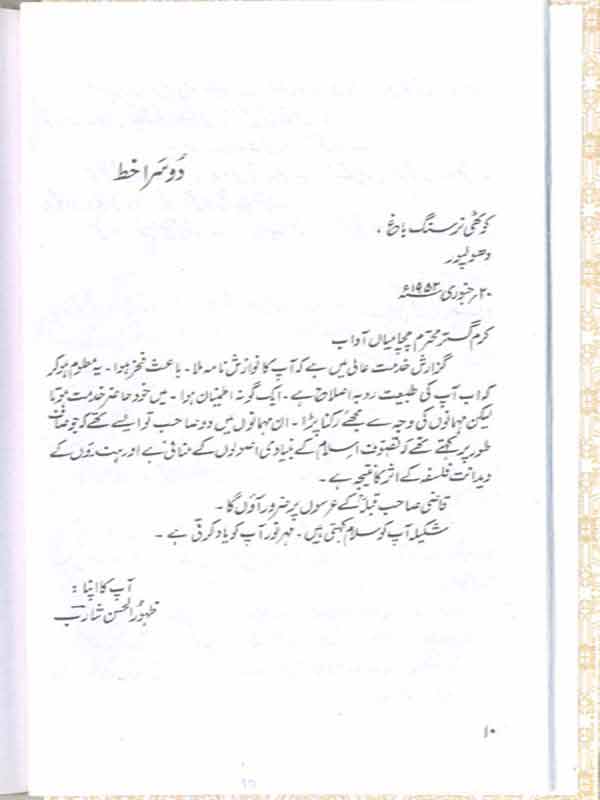 دُوسَرا خط
کوٹھی نرسنگ باغ ،
دھولپور
۲۰؍جنوری ۱۹۵۲ء
کرم گستر محترم چچا میاں آداب
گزارش خدمت عالی میں ہے کہ آپ کا نوازش نامہ ملا۔ باعث فخر ہوا۔ یہ معلوم ہوکر
کہ اب آپ کی طبیعت روبہ اصلاح ہے۔ ایک گونہ اطمینان ہوا۔ میں خود حاضر خدمت ہوتا
لیکن مہمانوں کی وجہ سے مجھے رکنا پڑا۔ ان مہمانوں میں دو صاحب تو ایسے تھے کہ جو صاف
طور پر کہتے تھے کہ تصوف اسلام کے بنیادی اصولوں کے منافی ہے اور بہت دنوں کے
ویدانت فلسفہ کے اثر کا نتیجہ ہے۔
قاضی صاحب قبلہؒ کے عرسوں پر ضرور آؤں گا۔
شکیلہ آپ کو سلام کہتی ہیں۔ مہر نور آپ کو یاد کرتی ہے۔
آپ کا اپنا :
ظہورُالحسن شارب
۱۰